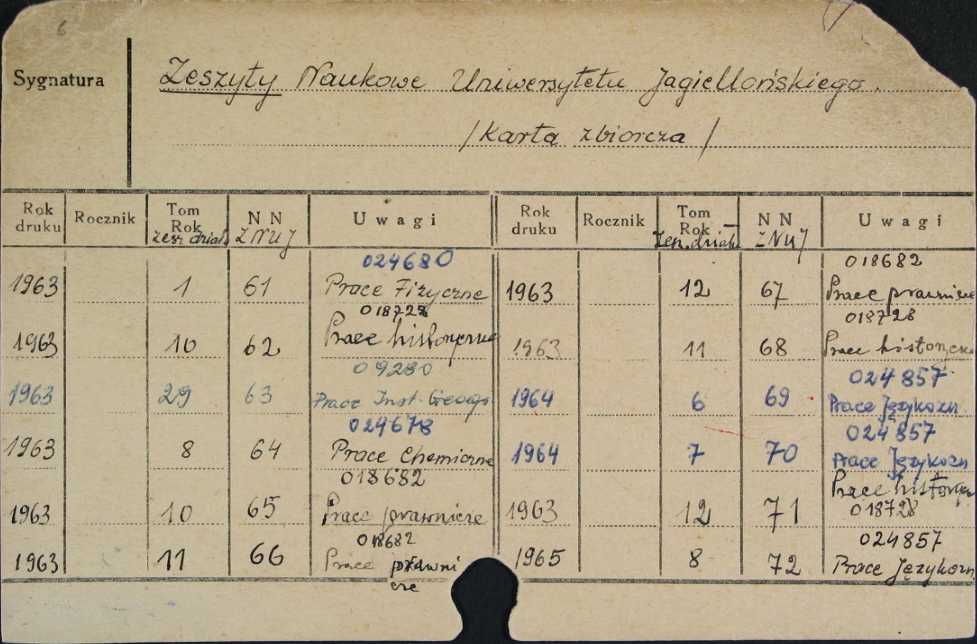 6
Sygnatura
Zeszyty Naukowe Uniwersytetu Jagiellońskiego.
/Karta zbiorcza/
Rok druku Rocznik Tom Rok zesz. dział. NN ZNUJ Uwagi
1963 1 61 024680 Prace Fizyczne
1963 10 62 018728 Prace historyczne
1963 29 63 09280 Prace Inst.
1963 8 64 024678 Prace Chemiczne
1963 10 65 018682 Prace prawnicze
1963 11 66 018682 Prace prawni
cze
Rok druku Rocznik Tom Rok zesz. dział. NN ZNUJ Uwagi
1963 12 67 018682 Prace prawnicze
1963 11 68 018728 Prace historyczn
1964 6 69 024857 Prace Językozn.
1964 7 70 024857 Prace Językozn
1963 12 71 Prace history
018728
1965 8 72 024857 Prace Językozn